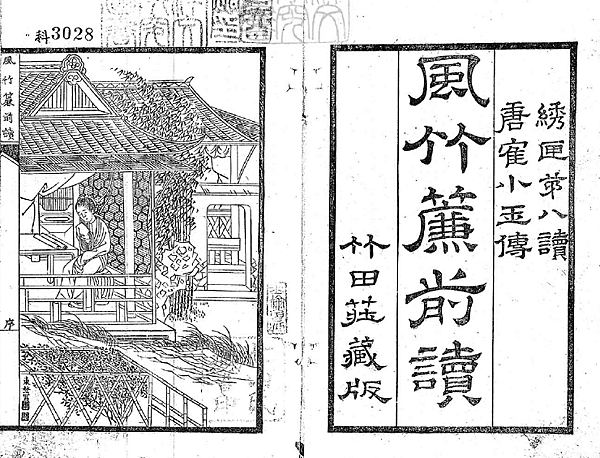 科3028
綉匣第八讀
唐霍小玉傳
風竹簾前讀
竹田莊藏版
風竹簾前讀
序